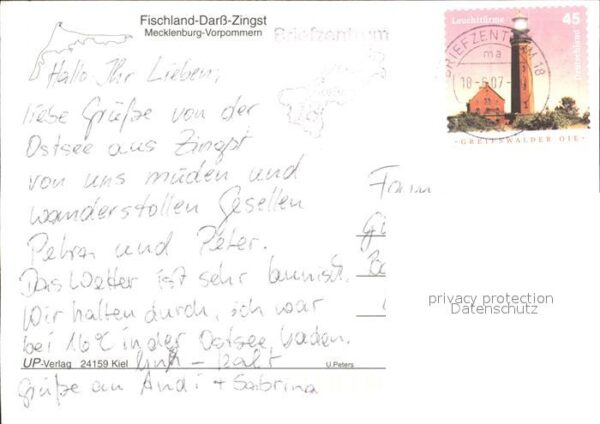 Fischland-Darß-Zingst
Mecklenburg-Vorpommern
Briefzentrum
Leuchttürme 45
Deutschland
BRIEFZENTRUM 18
ma
18.6.07
-GREIFSWALDER OIE-
Hallo Ihr Lieben,
liebe Grüße von der
Ostsee aus Zingst
von uns müden und
wanderstollen Gesellen
Petra und Peter.
Das Wetter ist sehr launisch.
Wir halten durch, ich war
bei 16°C in der Ostsee baden.
- kalt
Grüße an Andi + Sabrina
UP-Verlag 24159 Kiel
U.Peters
privacy protection
Datenschutz